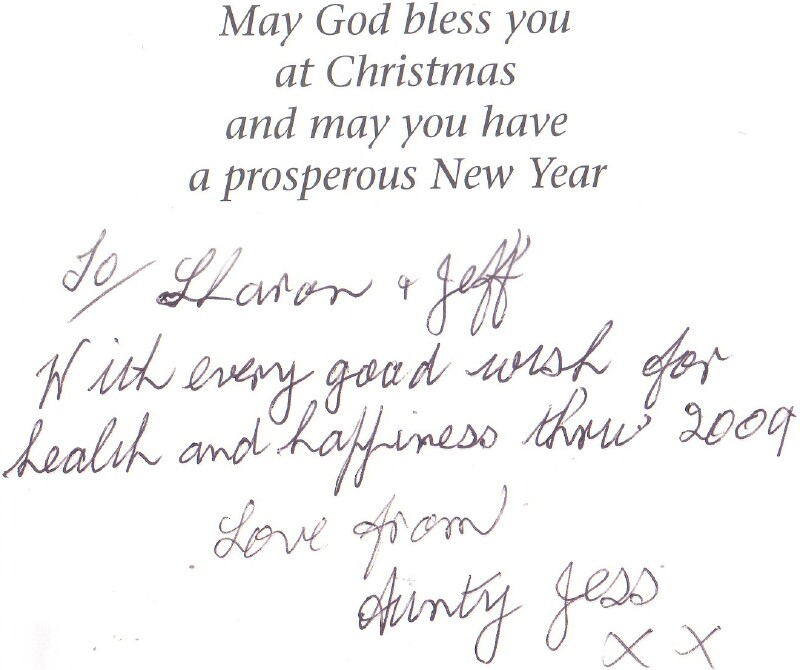 May God bless you
at Christmas
and may you have
a prosperous New Year
To/ Sharon & Jeff
With every good wish for
health and happiness thru' 2009
Love from
Aunty Jess
X X